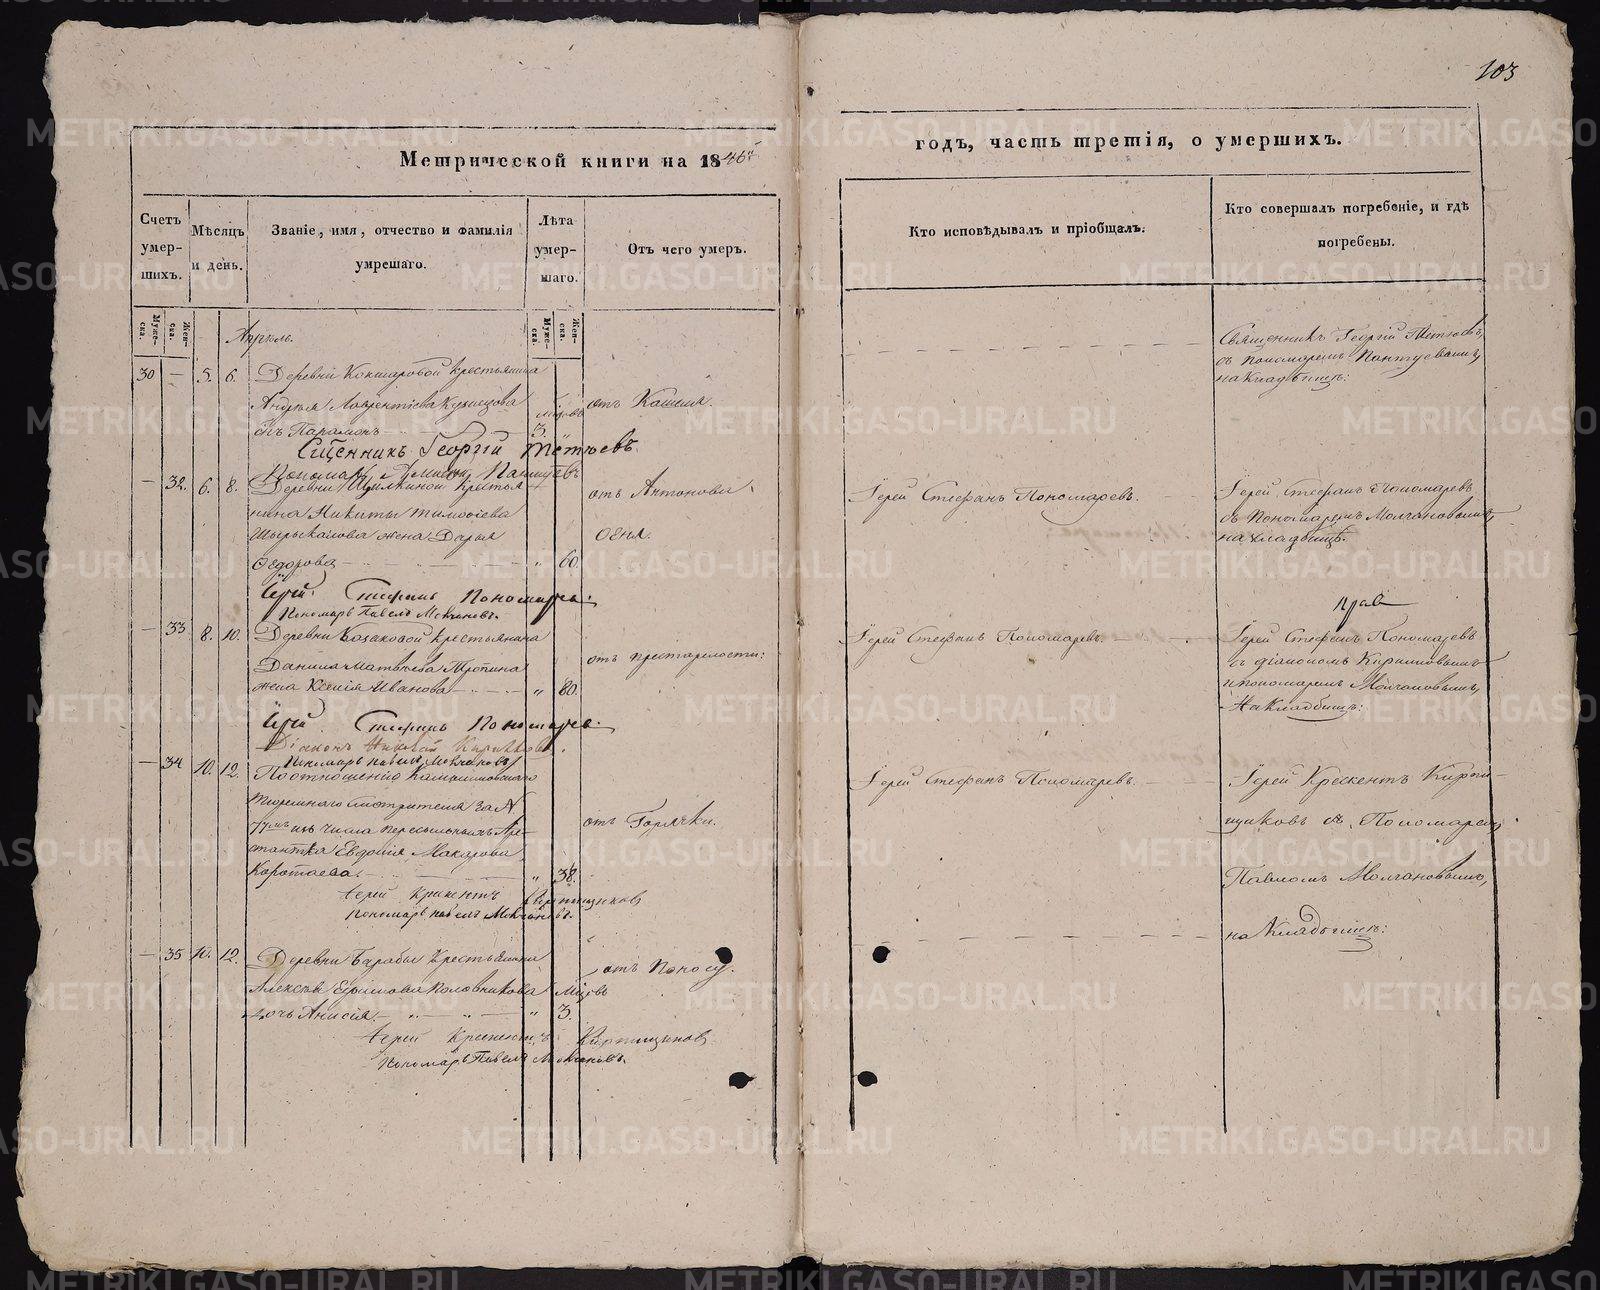 103
Метрической книги на 1846й
годъ, часть третія, о умершихъ.
Счетъ умер-шихъ.
Мѣсяцъ и день.
Званіе, имя, отчество и фамилія умершаго.
Лѣта умер-шаго.
Отъ чего умеръ.
Кто исповѣдывалъ и пріобщалъ.
Кто совершалъ погребеніе, и гдѣ погребены.
Муже-ска.
Жен-ска.
Муже-ска.
Жен-ска.
Апрель.
30 — 5. 6. Деревни Кокшаровой крестьянина
Андрея Лаврентіева Кузнецова
сынъ Парамонъ
мцовъ
3.
отъ Кашля.
Священникъ Георгій Тетюевъ,
съ пономаремъ
на кладбищѣ:
Сщенникъ Георгій Тетюевъ
Пономарь
— 32. 6. 8. Деревни крестья-
нина Никиты Тимофіева
жена Дарья
Федорова — " 60.
отъ Антонова
Огня.
Іерей Стефанъ Пономаревъ.
Іерей Стефанъ Пономаревъ
съ пономаремъ Молчановымъ,
на кладбищѣ.
Іерей Стефанъ Пономаревъ.
Пономарь Павелъ Молчановъ.
— 33 8. 10. Деревни Казаковой крестьянина
Данила Матвѣева Тропина
жена Ксенія Иванова — " 80.
отъ престарелости:
Іерей Стефанъ Пономаревъ.
Іерей Стефанъ Пономаревъ
съ діакономъ
и пономаремъ Молчановымъ,
на кладбищѣ:
Іерей Стефанъ Пономаревъ.
Діаконъ Николай
Пономарь Павелъ Молчановъ
— 34 10. 12. По отношенію Камышловскаго
тюремнаго смотрителя за №
77мъ изъ числа пересыльныхъ Аре-
стантка Евдокія Макарова
Коротаева. — " 38.
отъ Горячки.
Іерей Стефанъ Пономаревъ.
Іерей Крискентъ Кирпи-
щиковъ съ Пономаремъ
Павломъ Молчановымъ,
на кладбищѣ:
Іерей Крискентъ Кирпищиковъ
Пономарь Павелъ Молчановъ.
— 35 10. 12. Деревни Барабы крестьянина
Алексѣя Ефимова Половникова
дочь Анисія. — "
Мцовъ
3.
отъ Поносу.
Іерей Крискентъ Кирпищиковъ
Пономарь Павелъ Молчановъ.
METRIKI.GASO-URAL.RU